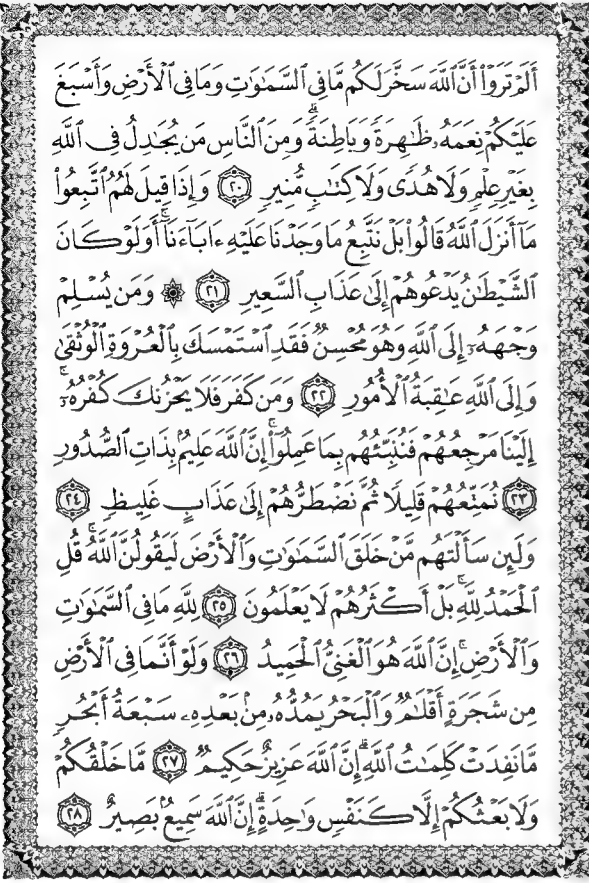 أَلَمۡ تَرَوۡاْ أَنَّ ٱللَّهَ سَخَّرَ لَكُم مَّا فِي ٱلسَّمَٰوَٰتِ وَمَا فِي ٱلۡأَرۡضِ وَأَسۡبَغَ
عَلَيۡكُمۡ نِعَمَهُۥ ظَٰهِرَةٗ وَبَاطِنَةٗۗ وَمِنَ ٱلنَّاسِ مَن يُجَٰدِلُ فِي ٱللَّهِ
بِغَيۡرِ عِلۡمٖ وَلَا هُدٗى وَلَا كِتَٰبٖ مُّنِيرٖ ٢٠ وَإِذَا قِيلَ لَهُمُ ٱتَّبِعُواْ
مَآ أَنزَلَ ٱللَّهُ قَالُواْ بَلۡ نَتَّبِعُ مَا وَجَدۡنَا عَلَيۡهِ ءَابَآءَنَآۚ أَوَلَوۡ كَانَ
ٱلشَّيۡطَٰنُ يَدۡعُوهُمۡ إِلَىٰ عَذَابِ ٱلسَّعِيرِ ٢١ ۞ وَمَن يُسۡلِمۡ
وَجۡهَهُۥٓ إِلَى ٱللَّهِ وَهُوَ مُحۡسِنٞ فَقَدِ ٱسۡتَمۡسَكَ بِٱلۡعُرۡوَةِ ٱلۡوُثۡقَىٰۗ
وَإِلَى ٱللَّهِ عَٰقِبَةُ ٱلۡأُمُورِ ٢٢ وَمَن كَفَرَ فَلَا يَحۡزُنكَ كُفۡرُهُۥٓۚ
إِلَيۡنَا مَرۡجِعُهُمۡ فَنُنَبِّئُهُم بِمَا عَمِلُوٓاْۚ إِنَّ ٱللَّهَ عَلِيمُۢ بِذَاتِ ٱلصُّدُورِ
٢٣ نُمَتِّعُهُمۡ قَلِيلٗا ثُمَّ نَضۡطَرُّهُمۡ إِلَىٰ عَذَابٍ غَلِيظٖ ٢٤
وَلَئِن سَأَلۡتَهُم مَّنۡ خَلَقَ ٱلسَّمَٰوَٰتِ وَٱلۡأَرۡضَ لَيَقُولُنَّ ٱللَّهُۚ قُلِ
ٱلۡحَمۡدُ لِلَّهِۚ بَلۡ أَكۡثَرُهُمۡ لَا يَعۡلَمُونَ ٢٥ لِلَّهِ مَا فِي ٱلسَّمَٰوَٰتِ
وَٱلۡأَرۡضِۚ إِنَّ ٱللَّهَ هُوَ ٱلۡغَنِيُّ ٱلۡحَمِيدُ ٢٦ وَلَوۡ أَنَّمَا فِي ٱلۡأَرۡضِ
مِن شَجَرَةٍ أَقۡلَٰمٞ وَٱلۡبَحۡرُ يَمُدُّهُۥ مِنۢ بَعۡدِهِۦ سَبۡعَةُ أَبۡحُرٖ
مَّا نَفِدَتۡ كَلِمَٰتُ ٱللَّهِۚ إِنَّ ٱللَّهَ عَزِيزٌ حَكِيمٞ ٢٧ مَّا خَلۡقُكُمۡ
وَلَا بَعۡثُكُمۡ إِلَّا كَنَفۡسٖ وَٰحِدَةٍۚ إِنَّ ٱللَّهَ سَمِيعُۢ بَصِيرٌ ٢٨